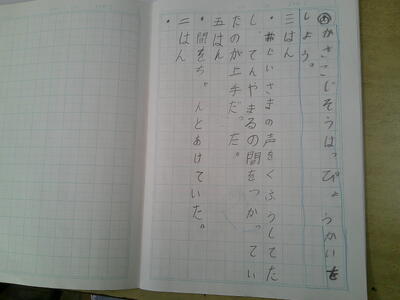 めかさこじぞうはっぴょうかいを
しよう。
三はん
・井じいさまの声をくふうしてた
し、てんやまるの間をつかってい
たのが上手だった。
五はん
・間をちゃんとあけていた。
二はん
・